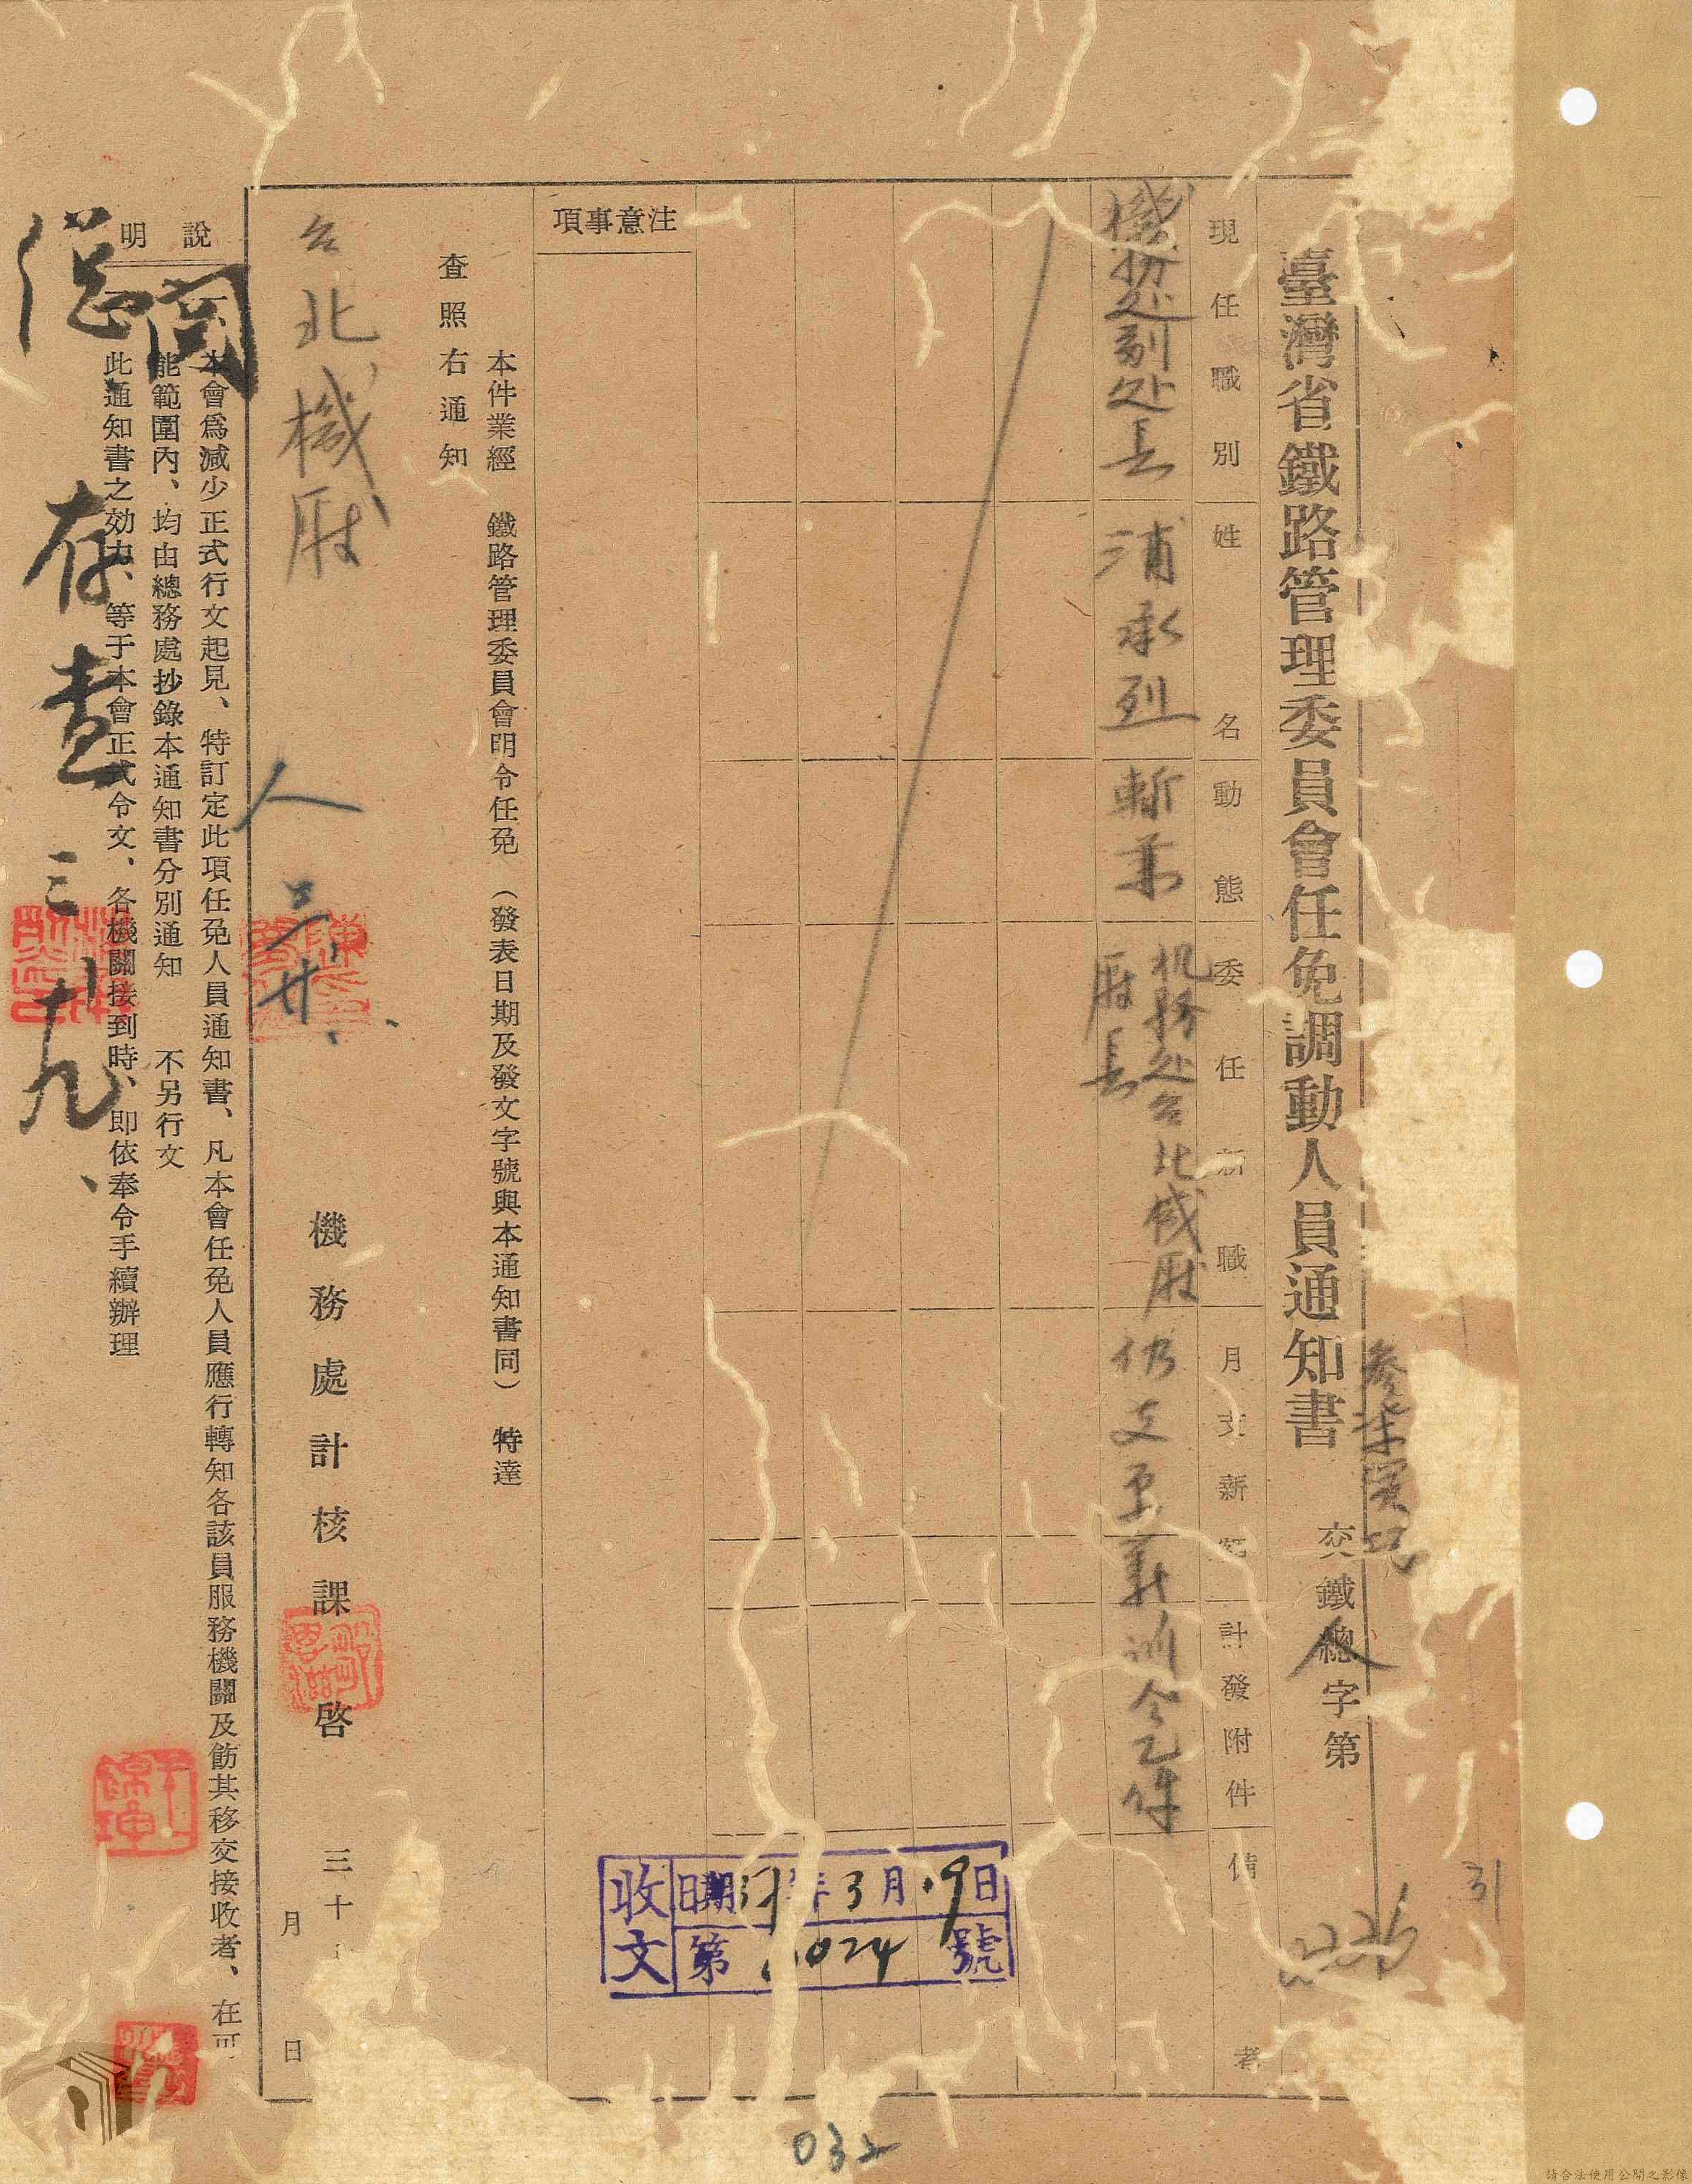 31
臺灣省鐵路管理委員會任免調動人員通知書
交鐵總字第
人
現任職別
姓名
動態
委任新職
月支新
計發附件
備考
機務处副处長
浦承烈
暫兼
机務处台北機厰
厰長
仍支原薪
訓令乙件
注意事項
本件業經 鐵路管理委員會明令任免 (發表日期及發文字號與本通知書同) 特達
查照右通知
台北機厰
機務處計核課啓
三十
月 日
人
說明
本會爲減少正式行文起見、特訂定此項任免人員通知書、凡本會任免人員應行轉知各該員服務機關及飭其移交接收者、在可
能範圍內、均由總務處抄錄本通知書分別通知 不另行文
此通知書之効力、等于本會正式令文、各機關接到時、即依奉令手續辦理
閱
存查 三九、
收文
日期 年3月9日
第 024 號
032
請合法使用公開之影像